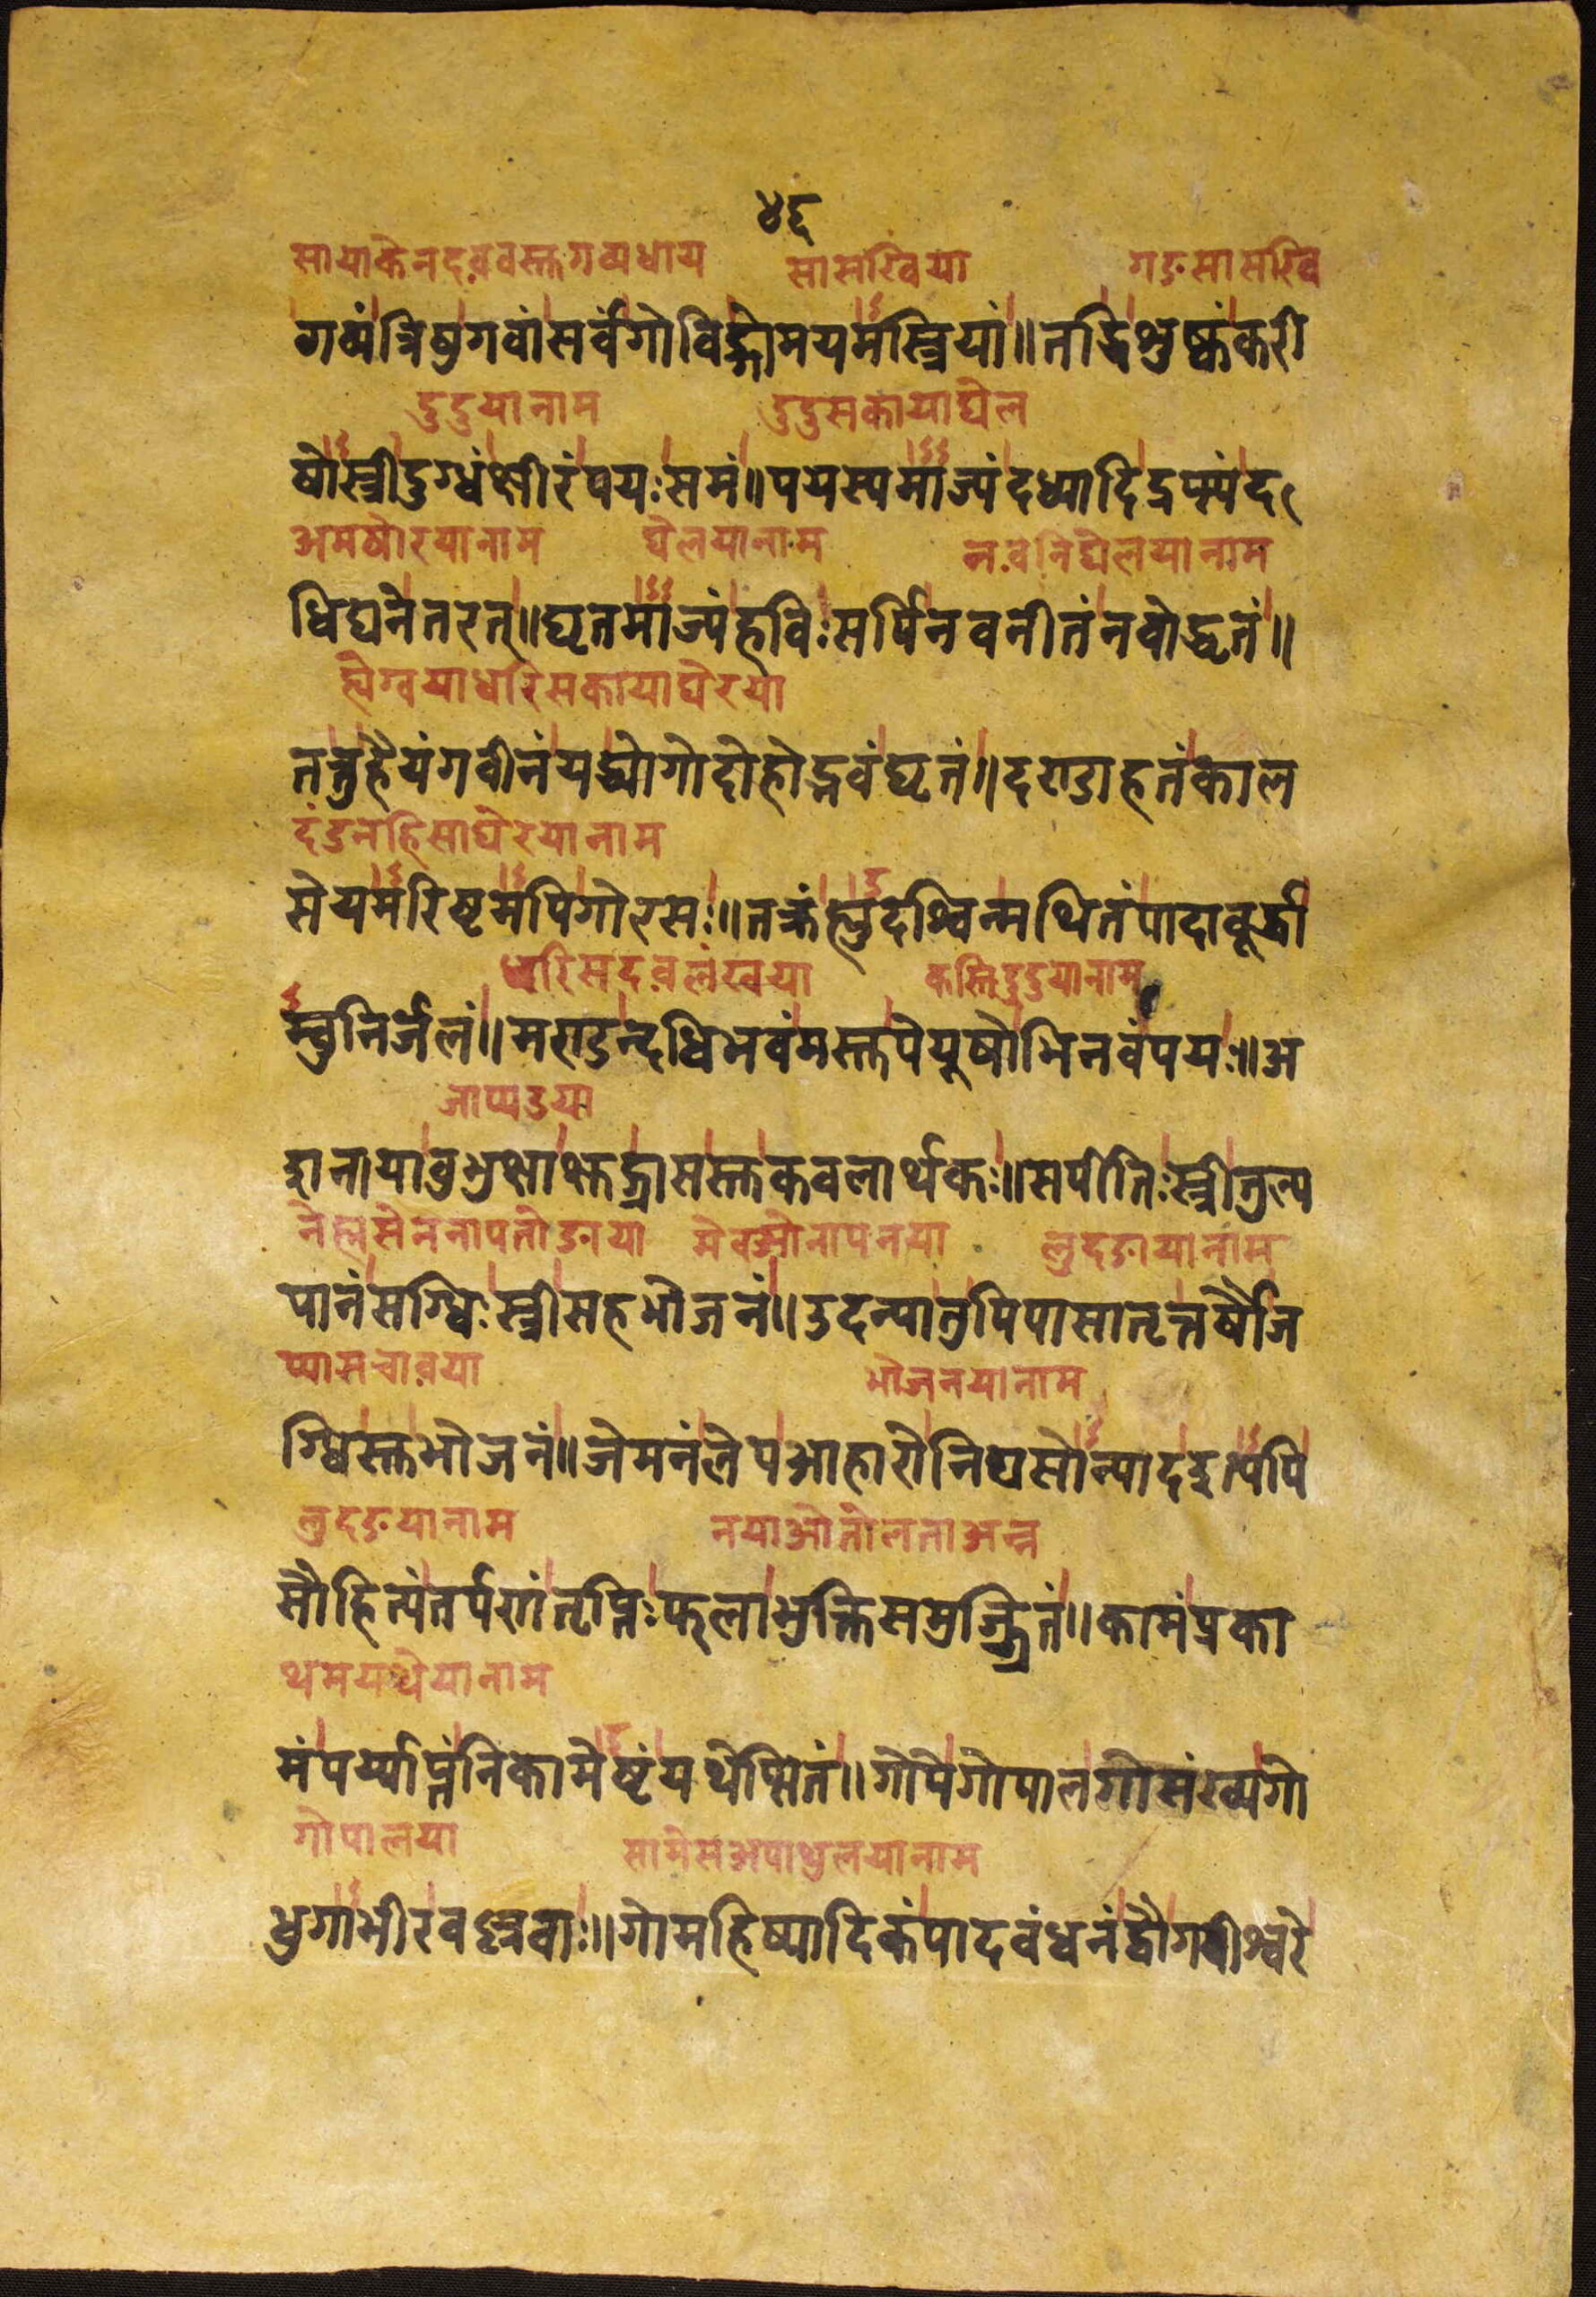 ४६
सायाकेनदववस्तगव्यधाय सासखिया गङसासखि
गव्यंत्रिषुगवांसर्वंगोविड्गोमयमस्त्रियां॥तद्विशुष्कंकरी
दुदुयानाम दुदुसकायाघेल
षोस्त्रीदुग्धंक्षीरंपयःसमं॥पयस्यमाज्यंदध्यादिद्रप्स्यंद
अमषोरयानाम घेलयानाम नवनिघेलयानाम
धिघनेतरत्॥घृतमाज्यंहविःसर्पिनवनीतंनवोद्धृतं॥
ह्येग्वयाधरिसकायाघेरया
तत्तुहैयंगवीनंयद्ध्योगोदोहोद्भवंघृतं॥दण्डाहतंकाल
दंडनहिसाघेरयानाम
सेयमरिष्टमपिगोरसः॥तक्रंह्युदश्विन्मथितंपादाबूर्द्धा
धरिसदवलंखया कस्तिदुदुयानाम
म्बुनिर्जलं॥मण्डन्दधिभवंमस्तुपेयूषोभिनवंपयः॥अ
जाप्यडया
शनायाबुभुक्षाक्षुद्ग्रासस्तुकवलार्थकः॥सपीतिःस्त्रीतुल्य
नेह्मसेननापतोङाया मेवओनापनया लुदङायानाम
पानंसग्धिःस्त्रीसहभोजनं॥उदन्यातुपिपासातृत्तर्षैजि
प्यासचावया भोजनयानाम
ग्धिस्तुभोजनं॥जेमनंलेपआहारोनिघसोन्यादइत्यपि
लुदङयानाम नयाओतोलताअन्न
सौहित्यंतर्पणंतृप्तिःफेलाभुक्तिसमुज्झितं॥कामंप्रका
थमयथेयानाम
मंपर्य्याप्तंनिकामेष्टंयथेप्सितं॥गोपेगोपालगोसंख्यगो
गोपालया सामेसअपाथुलयानाम
धुगाभीरवल्लवाः॥गोमहिष्यादिकंपादवंधनंद्वौगवीश्वरे